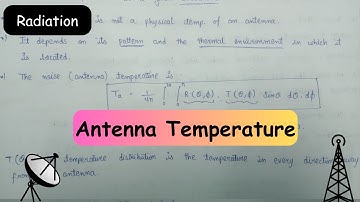 Radiation
is not a physical temp. of an antenna.
It depends on its pattern and the thermal environment in which it
is located.
The noise (antenna) temperature is
Ta = 1/4π ∫₀^2π ∫₀^π R(θ,ϕ) . T(θ,ϕ) sinθ dθ. dϕ
Antenna Temperature
T(θ temperature distribution is the temperature in every direction away
from antenna.